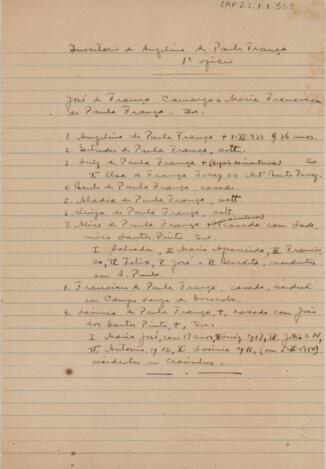 Inventario de Angelina de Paula França
1º oficio
José de França Camargo e Maria Francisca
de Paula França. teve
1. Angelina de Paula França + 1-XI-933 c/ 36 anos.
2. Gertrudes de Paula França, solt.
3. Luiz de Paula França + (depois da inventariada) teve
I Elsa de França Ferraz cc
4. Bento de Paula França, casado.
5. Eladia de Paula França, solt.
6. Luiza de Paula França, solt.
7. Alice de Paula França + casada com
Santos Pinto teve
I Salvador, II Maria Aparecida, III Francis
co, IV Felix, V José e VI Benedito, residentes
em S. Paulo.
8. Francisco de Paula França, casado, residente
em Campo Largo de Sorocaba.
9. Lavinia de Paula França, +, casada com João
dos Santos Pinto, +, teve
I Maria José, com 17 anos, II Luiz c/ 17, III
IV Antonio, c/ 12, V Lavinia c/ 11,
residentes em